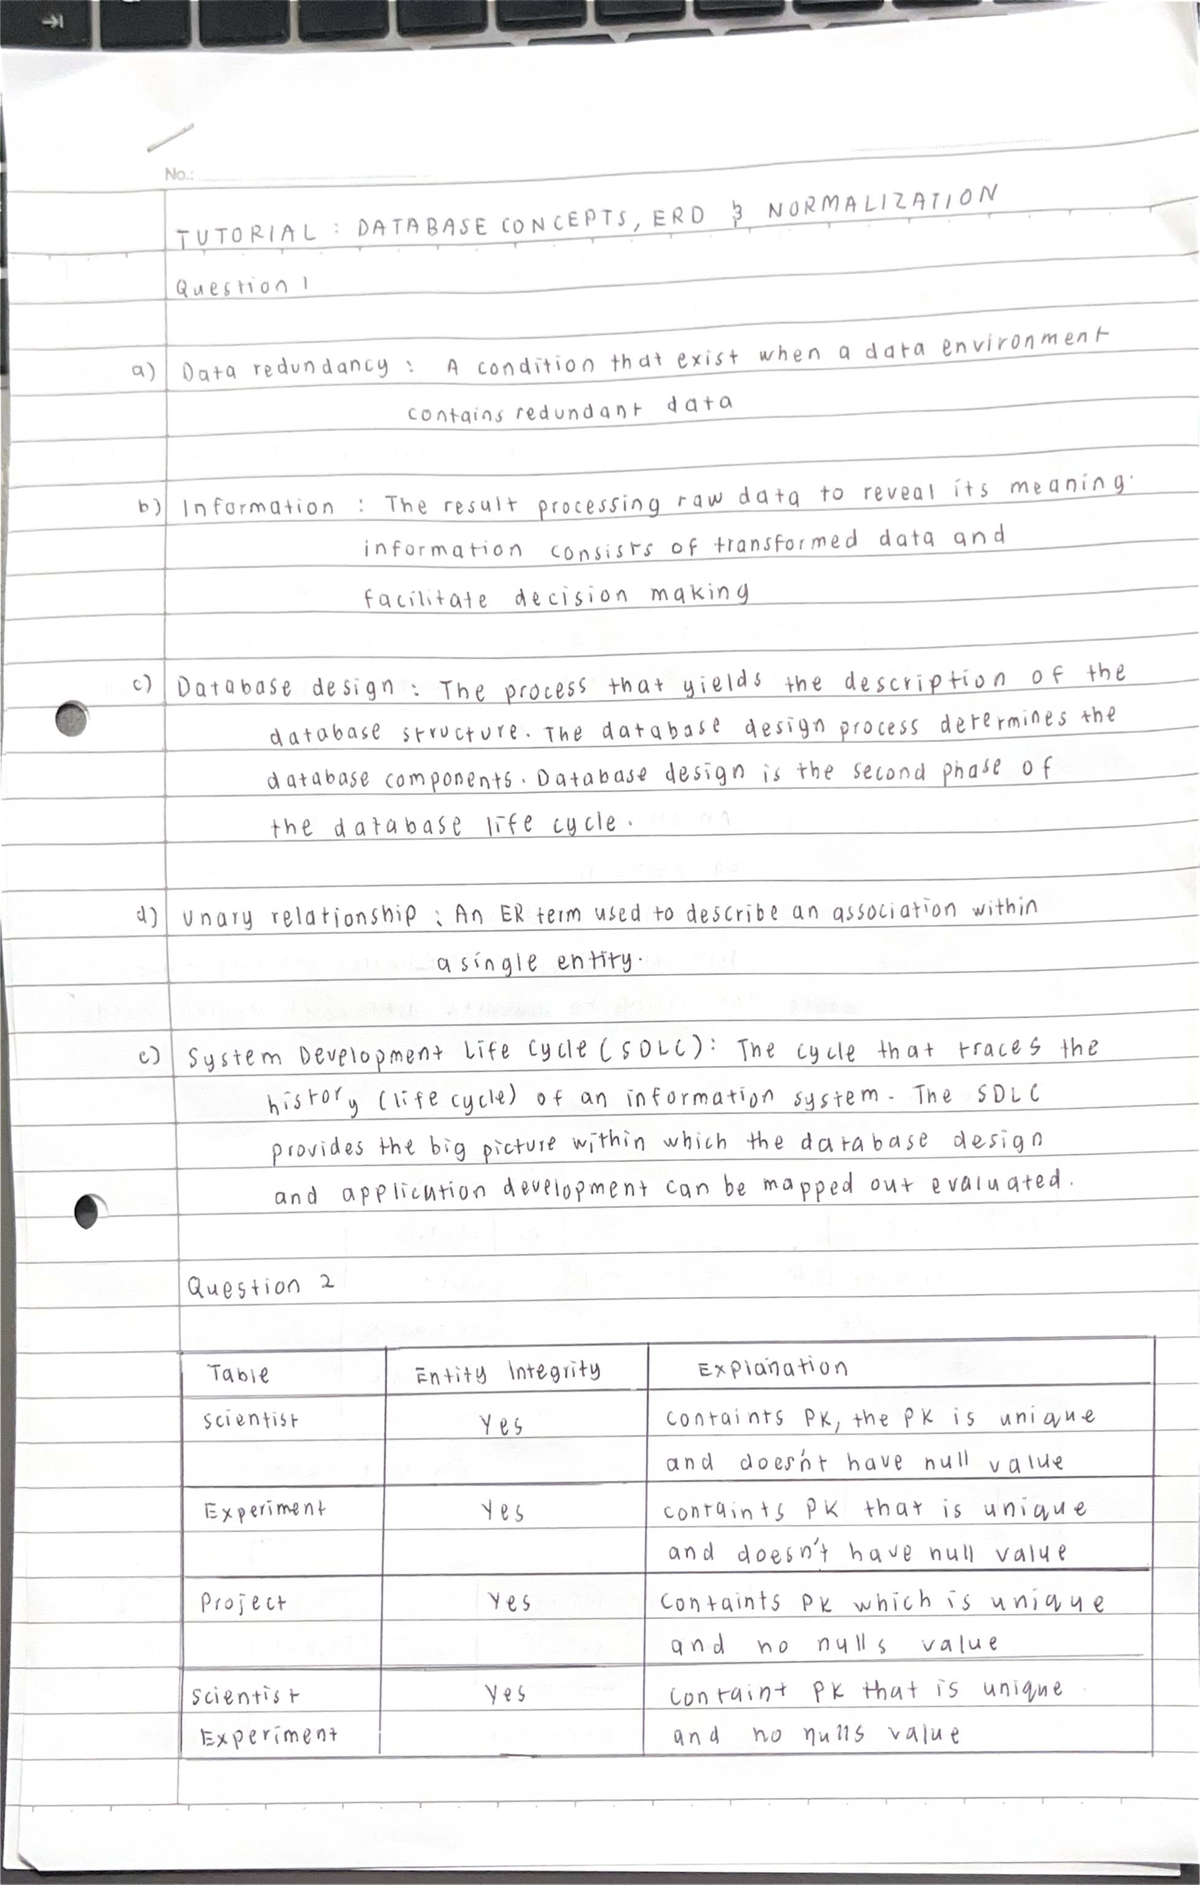 No.:
TUTORIAL : DATABASE CONCEPTS, ERD & NORMALIZATION
Question 1
a) Data redundancy : A condition that exist when a data environment
contains redundant data
b) Information : The result processing raw data to reveal its meaning.
information consists of transformed data and
facilitate decision making
c) Database design : The process that yields the description of the
database structure. The database design process determines the
database components. Database design is the second phase of
the database life cycle.
d) Unary relationship : An ER term used to describe an association within
a single entity.
e) System Development Life Cycle (SDLC) : The cycle that traces the
history (life cycle) of an information system. The SDLC
provides the big picture within which the database design
and application development can be mapped out evaluated.
Question 2
Table Entity Integrity Explanation
Scientist Yes Containts PK, the PK is unique
and doesn't have null value
Experiment Yes containts PK that is unique
and doesn't have null value
Project Yes Containts PK which is unique
and no nulls value
Scientist Yes Containt PK that is unique
Experiment and no nulls value